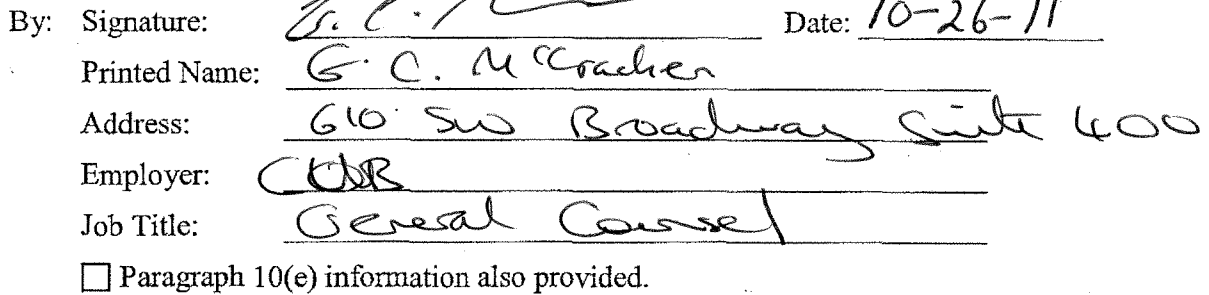 By: Signature: G. C. Date: 10-26-11
Printed Name: G. C. McCracken
Address: 610 SW Broadway Suite 400
Employer: CUB
Job Title: General Counsel
☐ Paragraph 10(e) information also provided.